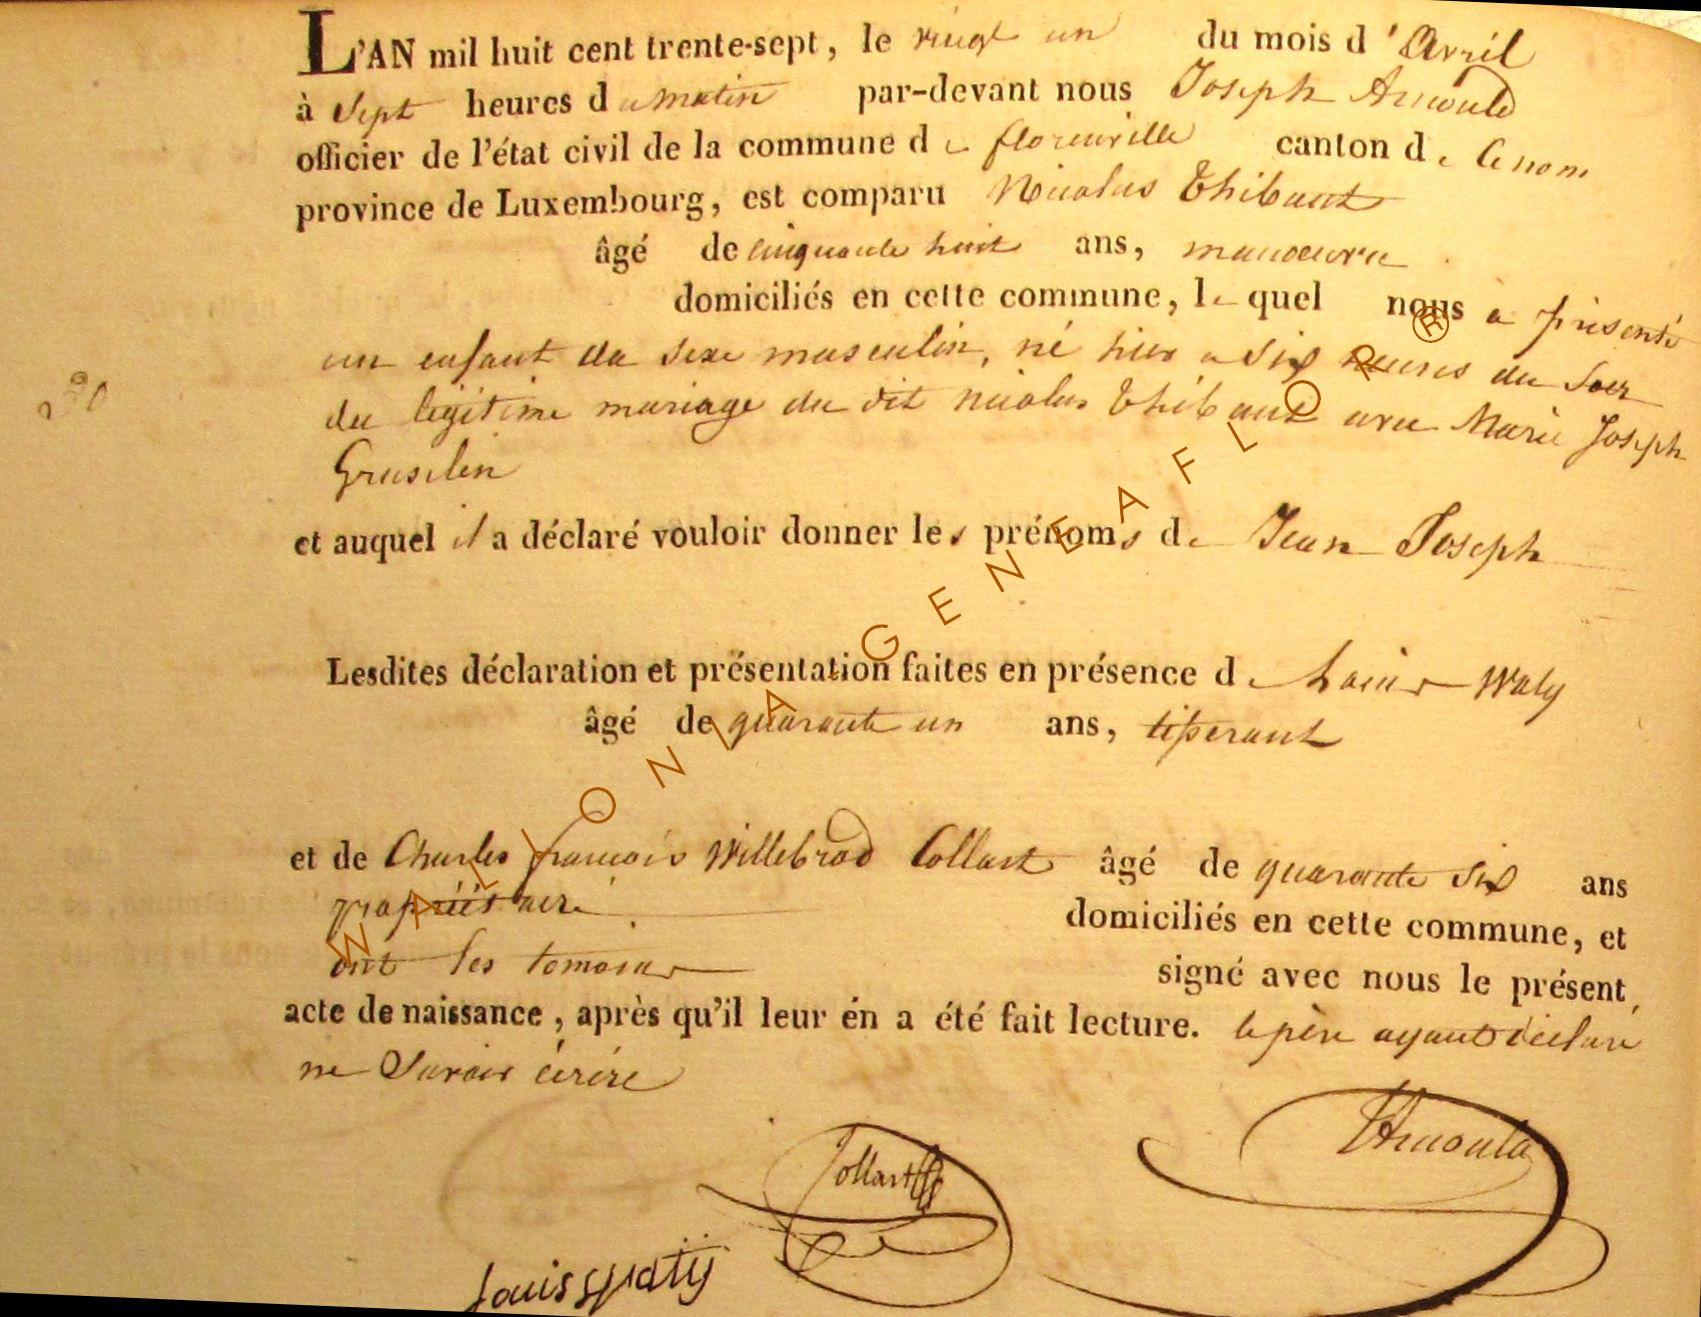 L'AN mil huit cent trente-sept, le vingt un du mois d'Avril
à sept heures du matin par-devant nous Joseph Arnould
officier de l'état civil de la commune de florenville canton de
province de Luxembourg, est comparu Nicolas Thibaut
âgé de cinquante huit ans, manoeuvre
domiciliés en cette commune, lequel nous a présenté
un enfant du sexe masculin, né hier a six heures du soir
du légitime mariage du dit nicolas Thibaut avec Marie Joseph
Gruslin
et auquel il a déclaré vouloir donner les prénoms de Jean Joseph
Lesdites déclaration et présentation faites en présence de Louis Waty
âgé de quarante un ans, tisserant
et de Charles francois Willebrod Collart âgé de quarante six ans
propriétaire domiciliés en cette commune, et
ont les temoins signé avec nous le présent
acte de naissance, après qu'il leur én a été fait lecture. le père ayant déclaré
ne Savoir écrire
Arnould
Collart
Louis Watÿ
WALLONIA GENEAFLOR ®